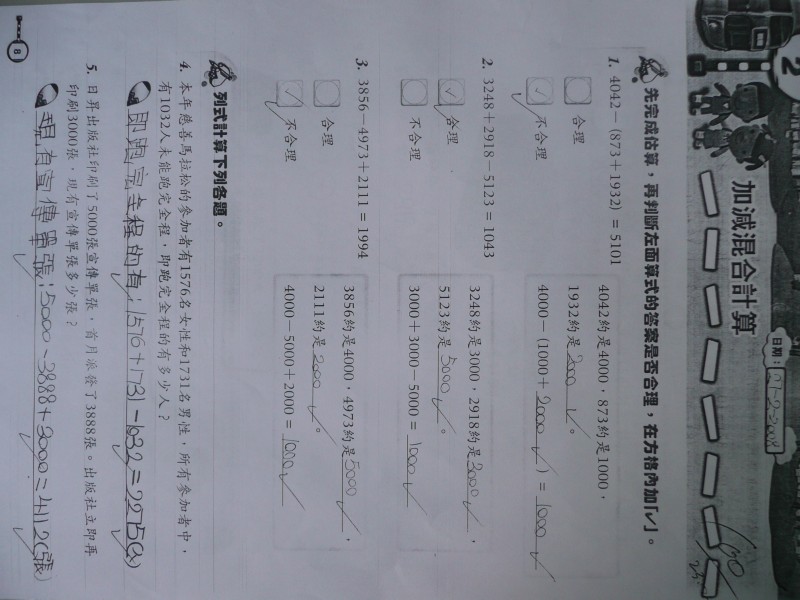 2
加減混合計算
日期：
先完成估算，再判斷左面算式的答案是否合理，在方格內加「✓」。
1. 4042－(873＋1932)＝5101
合理
✓ 不合理
4042約是4000，873約是1000，
1932約是2000。
4000－(1000＋2000)＝1000
2. 3248＋2918－5123＝1043
✓ 合理
不合理
3248約是3000，2918約是3000，
5123約是5000。
3000＋3000－5000＝1000
3. 3856－4973＋2111＝1994
合理
✓ 不合理
3856約是4000，4973約是5000，
2111約是2000。
4000－5000＋2000＝1000
列式計算下列各題。
4. 本年慈善馬拉松的參加者有1576名女性和1731名男性，所有參加者中，
有1032人未能跑完全程，即跑完全程的有多少人？
即跑完全程的有：1576+1731-1032=2275(人)
5. 日昇出版社印刷了5000張宣傳單張，首月派發了3888張。出版社立即再
印刷3000張，現有宣傳單張多少張？
現有宣傳單張：5000-3888+3000=4112(張)
8